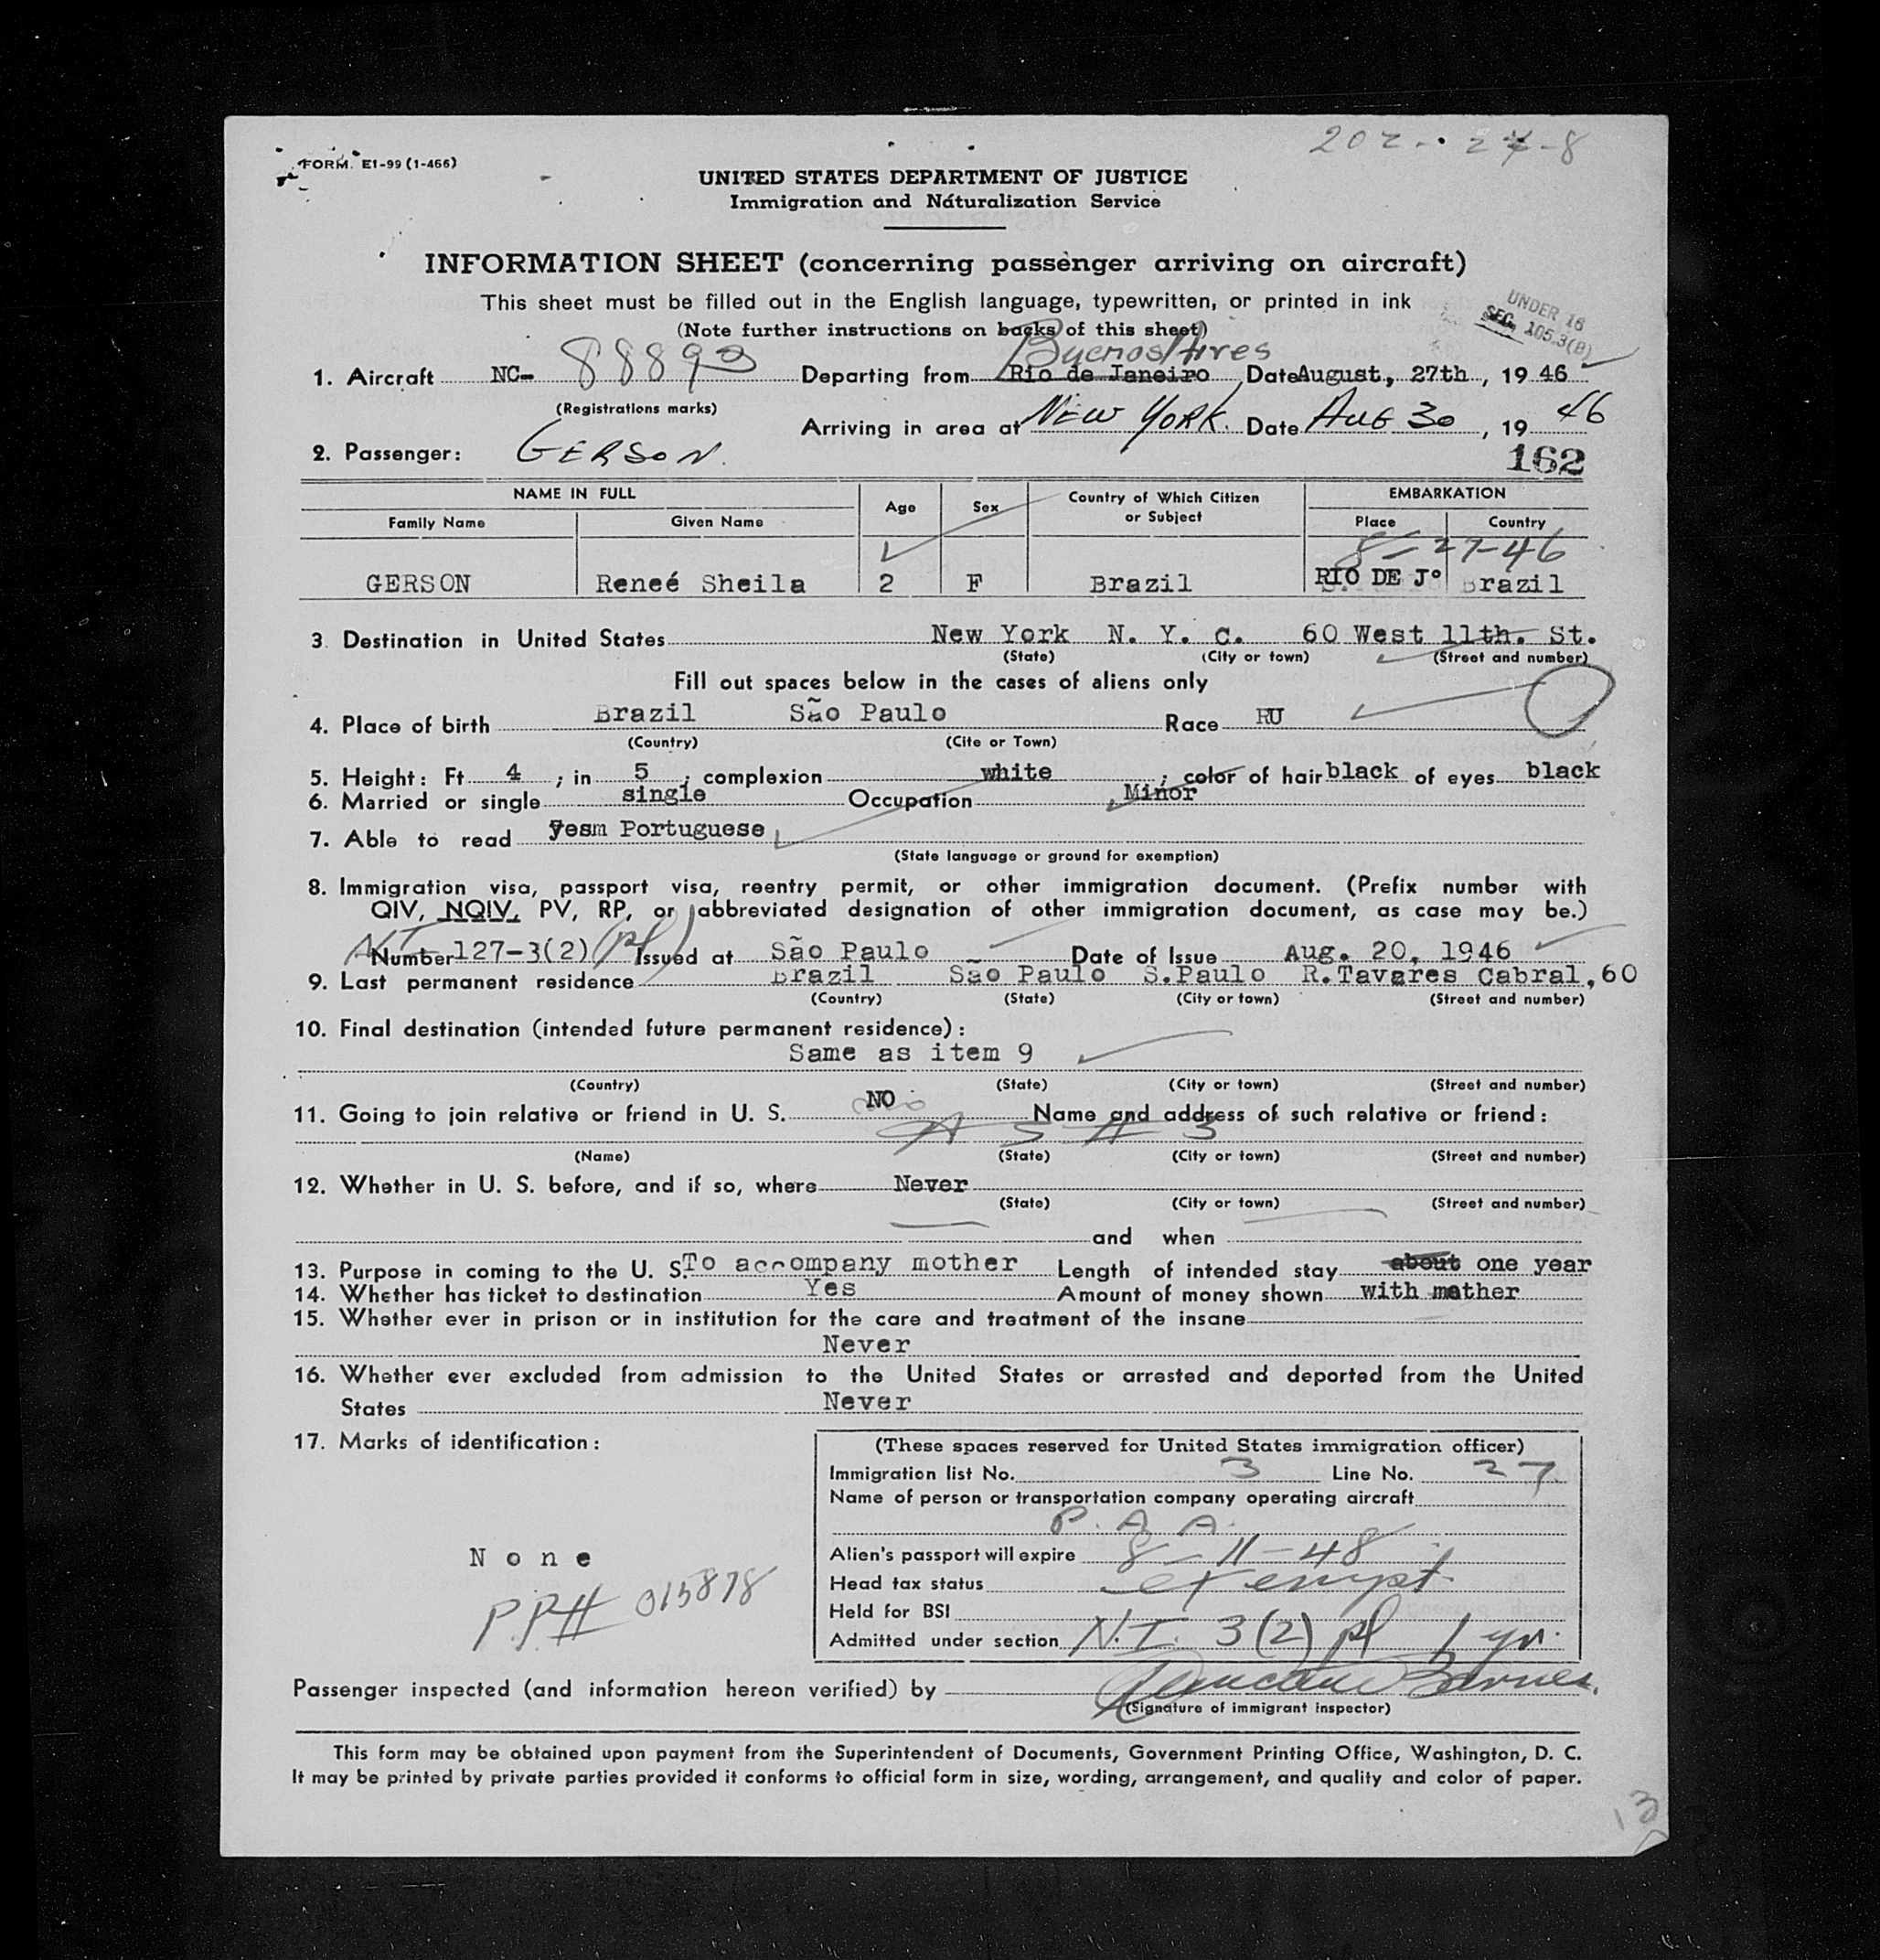 202-. 24-8
FORM E1-99 (1-466)
UNITED STATES DEPARTMENT OF JUSTICE
Immigration and Naturalization Service
INFORMATION SHEET (concerning passenger arriving on aircraft)
This sheet must be filled out in the English language, typewritten, or printed in ink
(Note further instructions on backs of this sheet)
UNDER 16
SEC. 105.3(B)
Buenos Aires
1. Aircraft NC- 88890 Departing from Rio de Janeiro Date August, 27th, 1946
(Registrations marks)
Arriving in area at NEW YORK. Date AUG 30, 1946
2. Passenger: GERSON. 162
NAME IN FULL Age Sex Country of Which Citizen or Subject EMBARKATION
Family Name Given Name Place Country
8-27-46
GERSON Reneé Sheila 2 F Brazil RIO DE Jº Brazil
3. Destination in United States New York N. Y. C. 60 West 11th. St.
(State) (City or town) (Street and number)
Fill out spaces below in the cases of aliens only
4. Place of birth Brazil São Paulo Race RU
(Country) (Cite or Town)
5. Height: Ft 4 ; in 5 ; complexion white ; color of hair black of eyes black
6. Married or single single Occupation Minor
7. Able to read yesm Portuguese
(State language or ground for exemption)
8. Immigration visa, passport visa, reentry permit, or other immigration document. (Prefix number with
QIV, NQIV, PV, RP, or abbreviated designation of other immigration document, as case may be.)
Number 127-3(2) (pl) Issued at São Paulo Date of Issue Aug. 20, 1946
9. Last permanent residence Brazil São Paulo S.Paulo R.Tavares Cabral,60
(Country) (State) (City or town) (Street and number)
10. Final destination (intended future permanent residence):
Same as item 9
(Country) (State) (City or town) (Street and number)
11. Going to join relative or friend in U. S. NO Name and address of such relative or friend:
A S A 3
(Name) (State) (City or town) (Street and number)
12. Whether in U. S. before, and if so, where Never
(State) (City or town) (Street and number)
and when
13. Purpose in coming to the U. S. To accompany mother Length of intended stay about one year
14. Whether has ticket to destination Yes Amount of money shown with mother
15. Whether ever in prison or in institution for the care and treatment of the insane
Never
16. Whether ever excluded from admission to the United States or arrested and deported from the United
States Never
17. Marks of identification:
None
P.P.# 015878
(These spaces reserved for United States immigration officer)
Immigration list No. 3 Line No. 27
Name of person or transportation company operating aircraft
P. A. A.
Alien's passport will expire 8-11-48
Head tax status exempt
Held for BSI
Admitted under section N.I. 3(2) pl 1 yr.
Passenger inspected (and information hereon verified) by Barnes.
(Signature of immigrant inspector)
This form may be obtained upon payment from the Superintendent of Documents, Government Printing Office, Washington, D. C.
It may be printed by private parties provided it conforms to official form in size, wording, arrangement, and quality and color of paper.
13